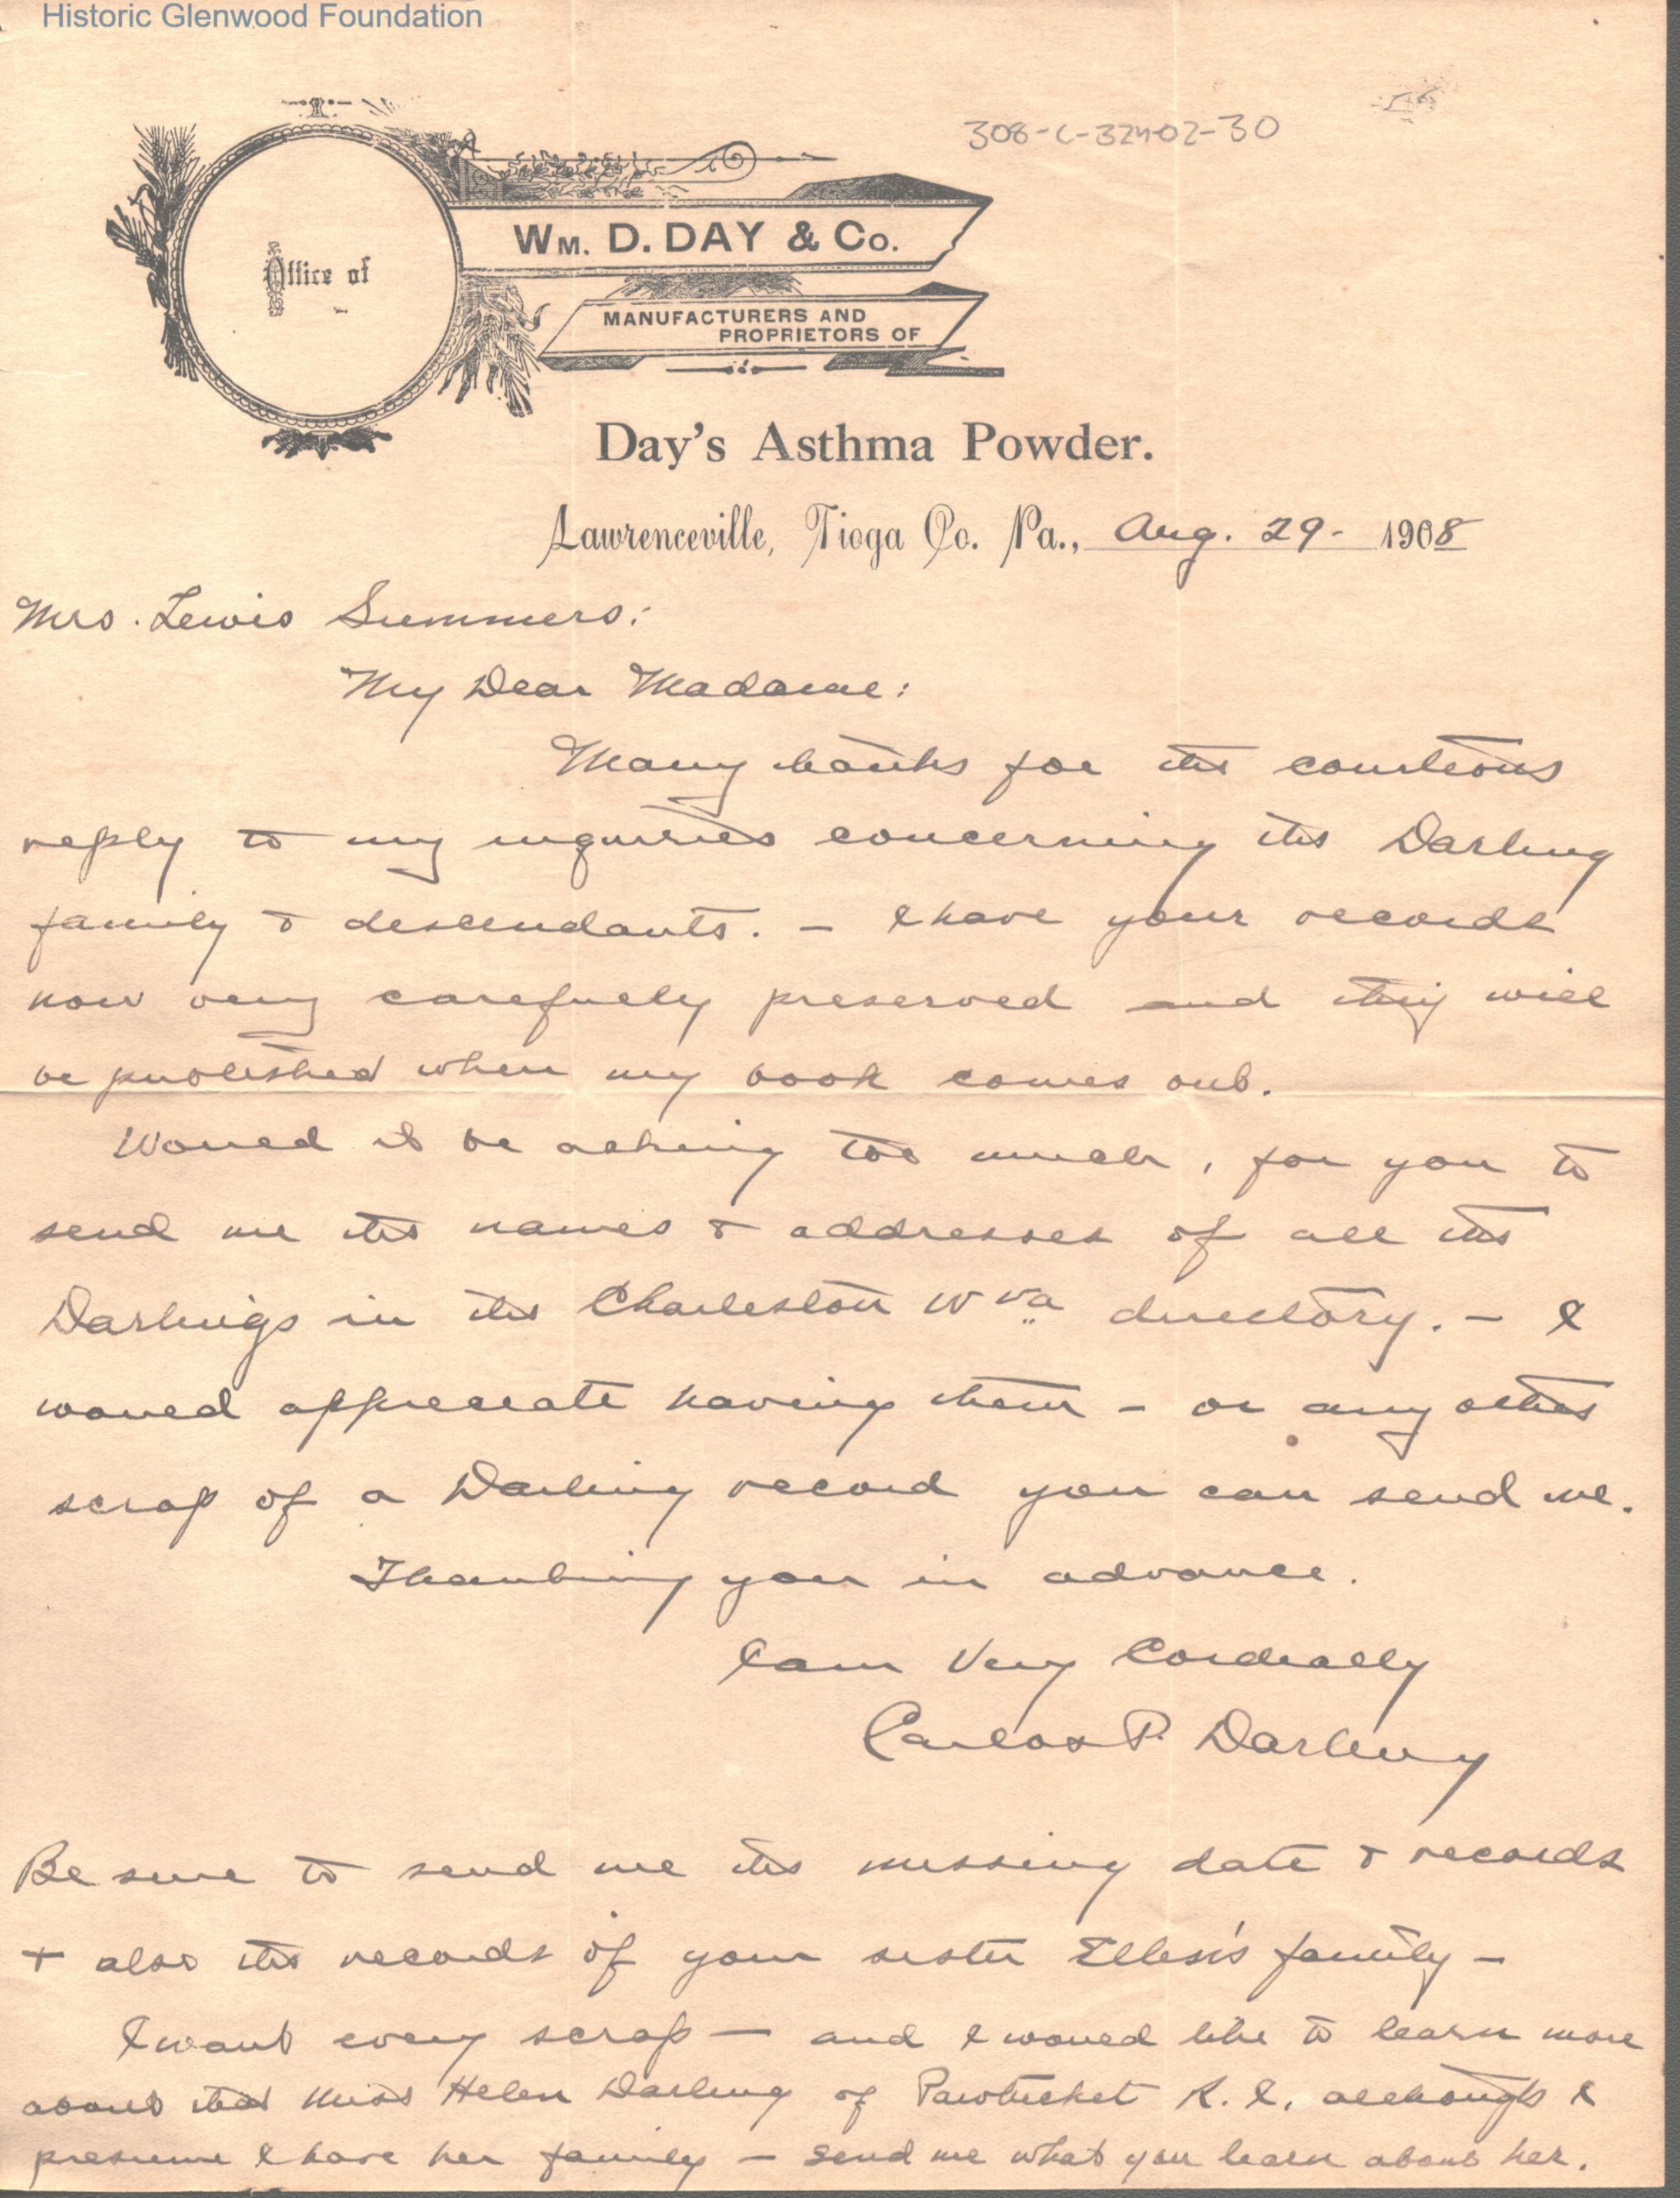 Historic Glenwood Foundation
308-C-32402-30
Office of
WM. D. DAY & Co.
MANUFACTURERS AND
PROPRIETORS OF
Day's Asthma Powder.
Lawrenceville, Tioga Co. Pa., Aug. 29- 1908
Mrs. Lewis Summers:
My Dear Madame:
Many thanks for the courteous
reply to my inquiries concerning the Darling
family & descendants. - I have your records
now very carefully preserved and they will
be published when my book comes out.
Would it be asking too much, for you to
send me the names & addresses of all the
Darlings in the Charleston W Va directory. - I
would appreciate having them - or any other
scrap of a Darling record you can send me.
Thanking you in advance.
I am Very Cordially
Carlos P. Darling
Be sure to send me the missing date & records
+ also the records of your sister family -
I want every scrap - and I would like to learn more
about that Miss Helen Darling of Pawtucket R. I. although I
presume I have her family - send me what you learn about her.